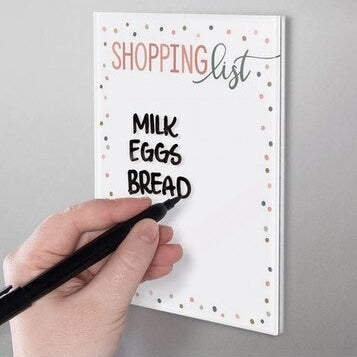 SHOPPING list
MILK
EGGS
BREAD